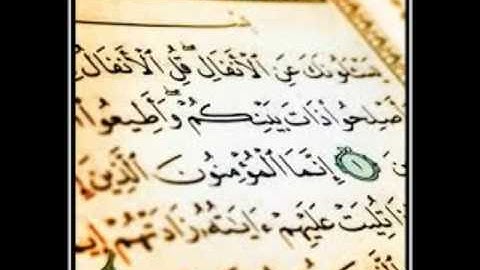 يَسْـَٔلُونَكَ عَنِ ٱلْأَنفَالِ ۖ قُلِ ٱلْأَنفَالُ
وَأَصْلِحُوا۟ ذَاتَ بَيْنِكُمْ ۖ وَأَطِيعُوا۟
١ إِنَّمَا ٱلْمُؤْمِنُونَ ٱلَّذِينَ
تُلِيَتْ عَلَيْهِمْ ءَايَٰتُهُۥ زَادَتْهُمْ